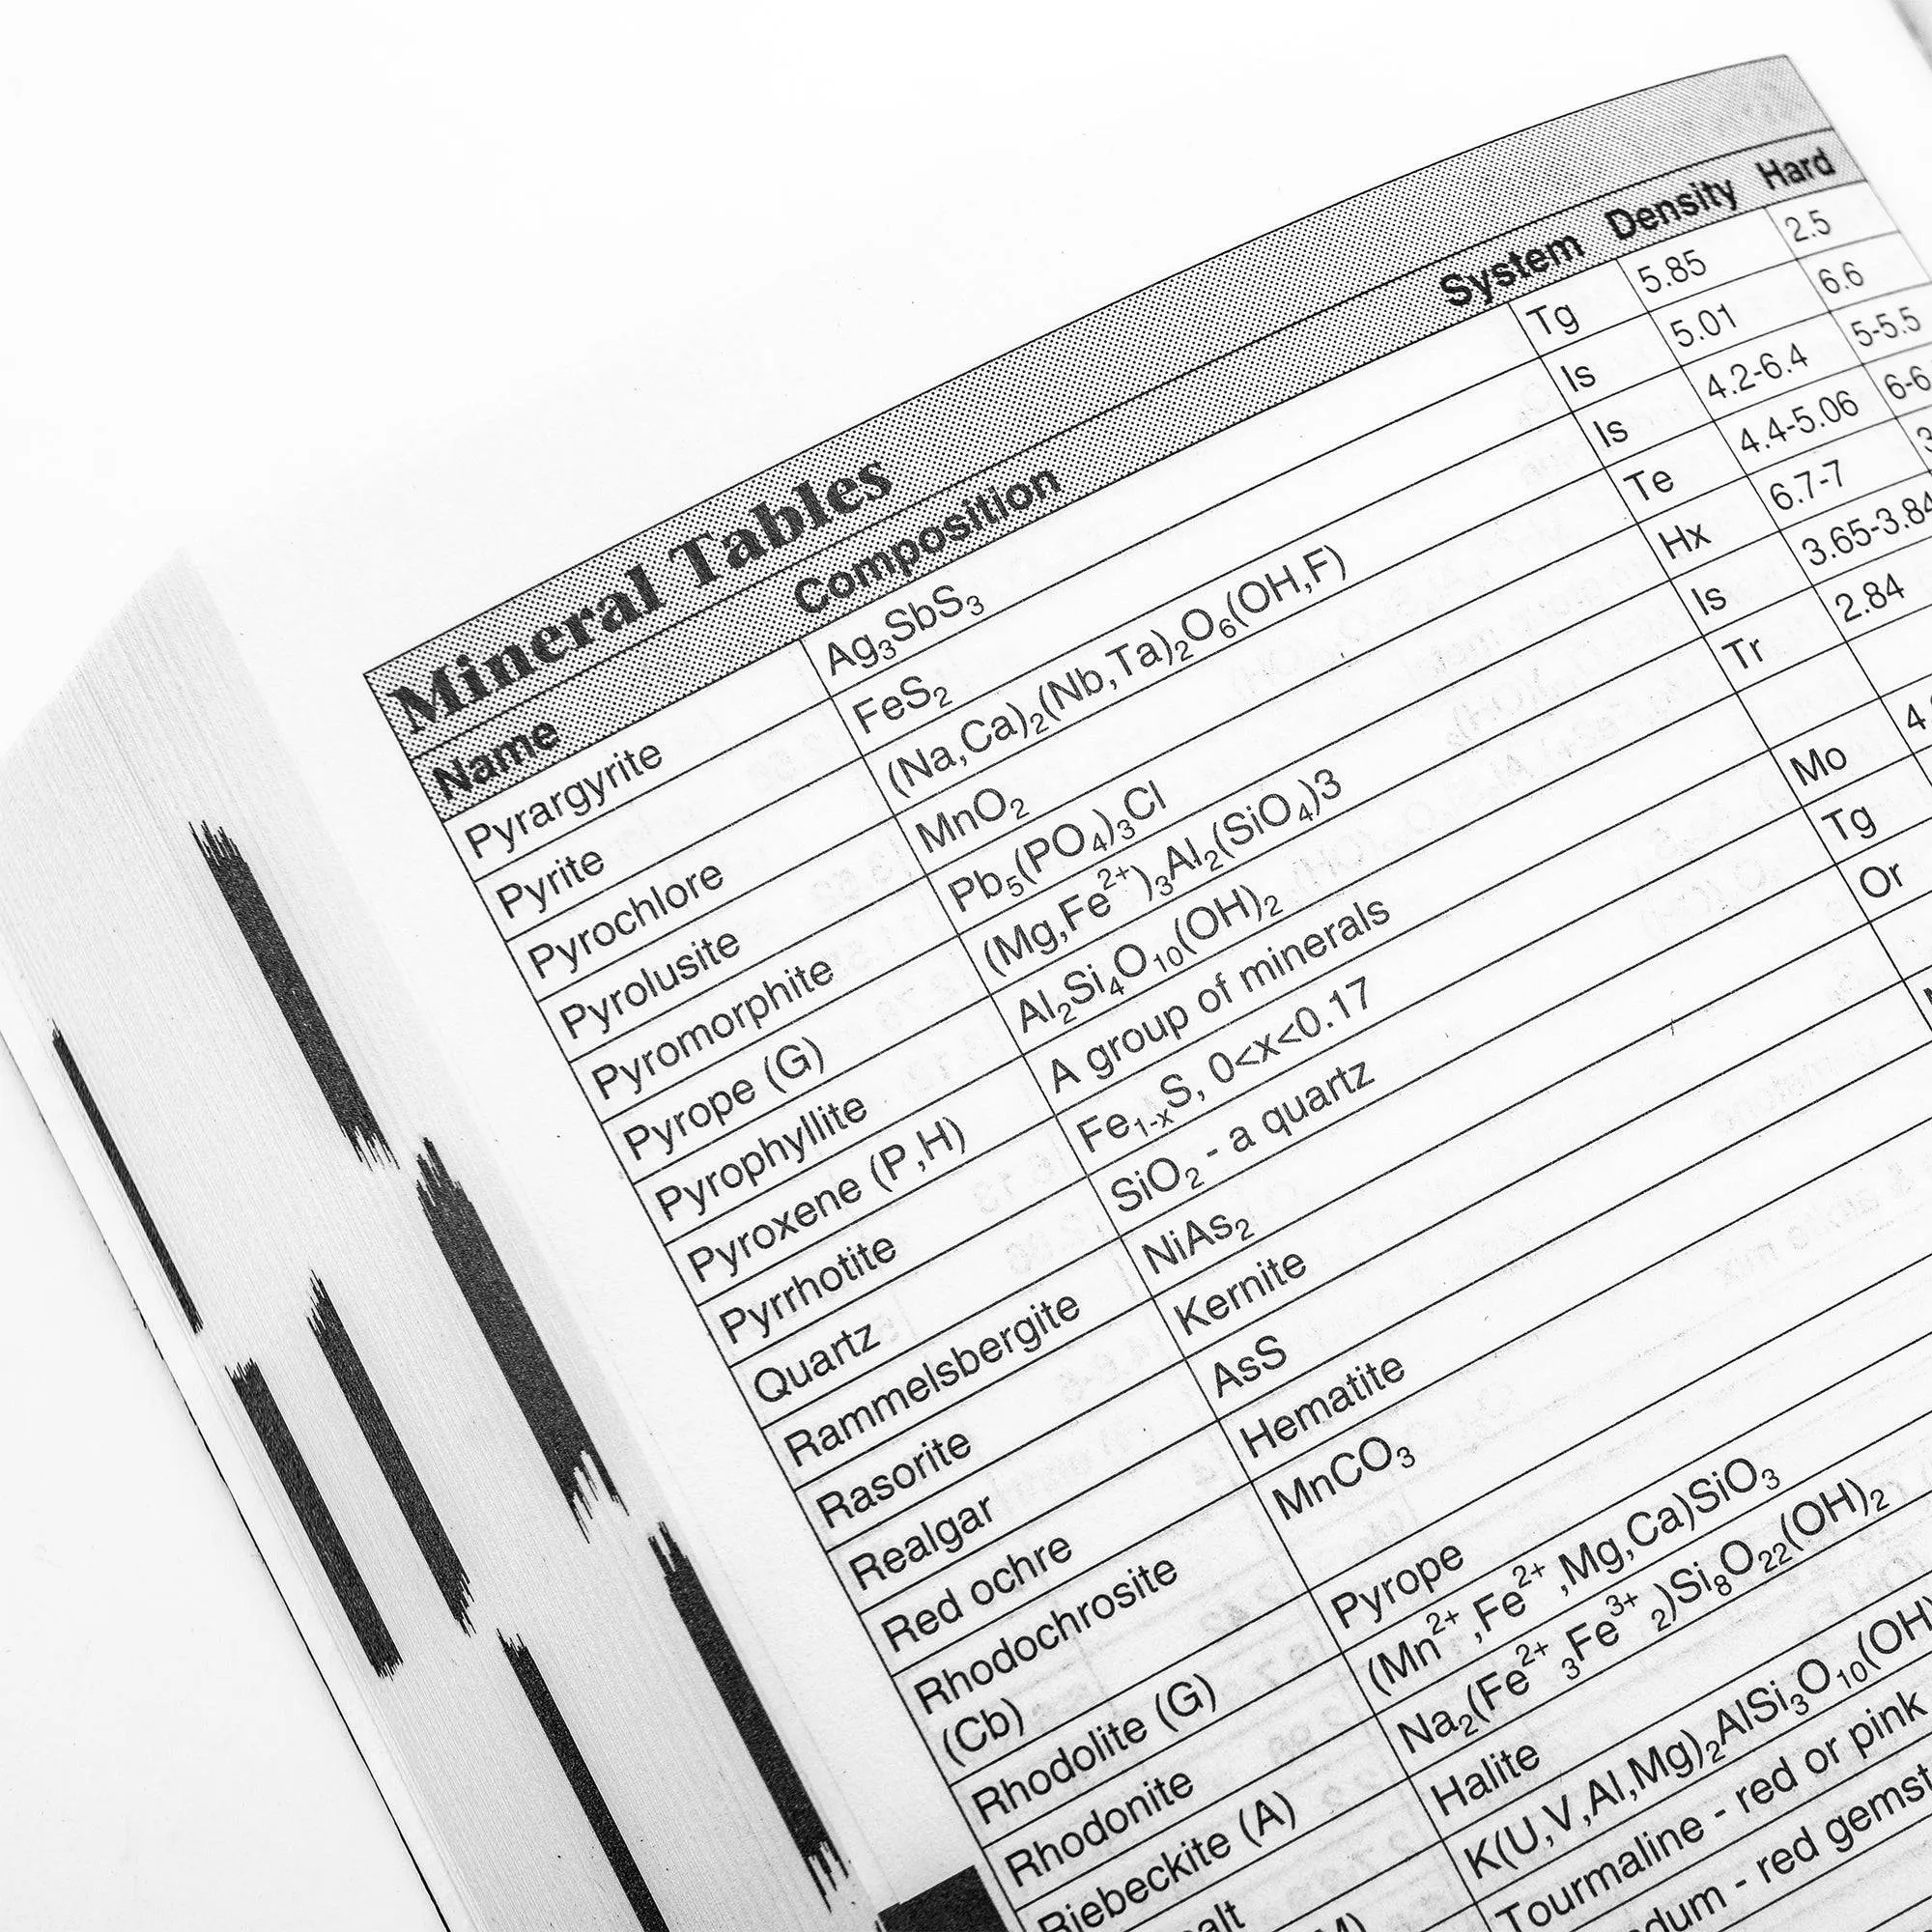 Mineral Tables
Name Composition System Density Hard
Pyrargyrite Ag₃SbS₃ Tg 5.85 2.5
Pyrite FeS₂ Is 5.01 6.6
Pyrochlore (Na,Ca)₂(Nb,Ta)₂O₆(OH,F) Is 4.2-6.4 5-5.5
Pyrolusite MnO₂ Te 4.4-5.06 6-6
Pyromorphite Pb₅(PO₄)₃Cl Hx 6.7-7 3
Pyrope (G) (Mg,Fe²⁺)₃Al₂(SiO₄)3 Is 3.65-3.84
Pyrophyllite Al₂Si₄O₁₀(OH)₂ Tr 2.84
Pyroxene (P,H) A group of minerals
Pyrrhotite Fe₁₋ₓS, 0<x<0.17 Mo 4
Quartz SiO₂ - a quartz Tg
Rammelsbergite NiAs₂ Or
Rasorite Kernite
Realgar AsS
Red ochre Hematite
Rhodochrosite MnCO₃
(Cb)
Rhodolite (G) Pyrope
Rhodonite (Mn²⁺,Fe²⁺,Mg,Ca)SiO₃
Riebeckite (A) Na₂(Fe²⁺₃Fe³⁺₂)Si₈O₂₂(OH)₂
alt Halite
K(U,V,Al,Mg)₂AlSi₃O₁₀(OH)
Tourmaline - red or pink
dum - red gemst